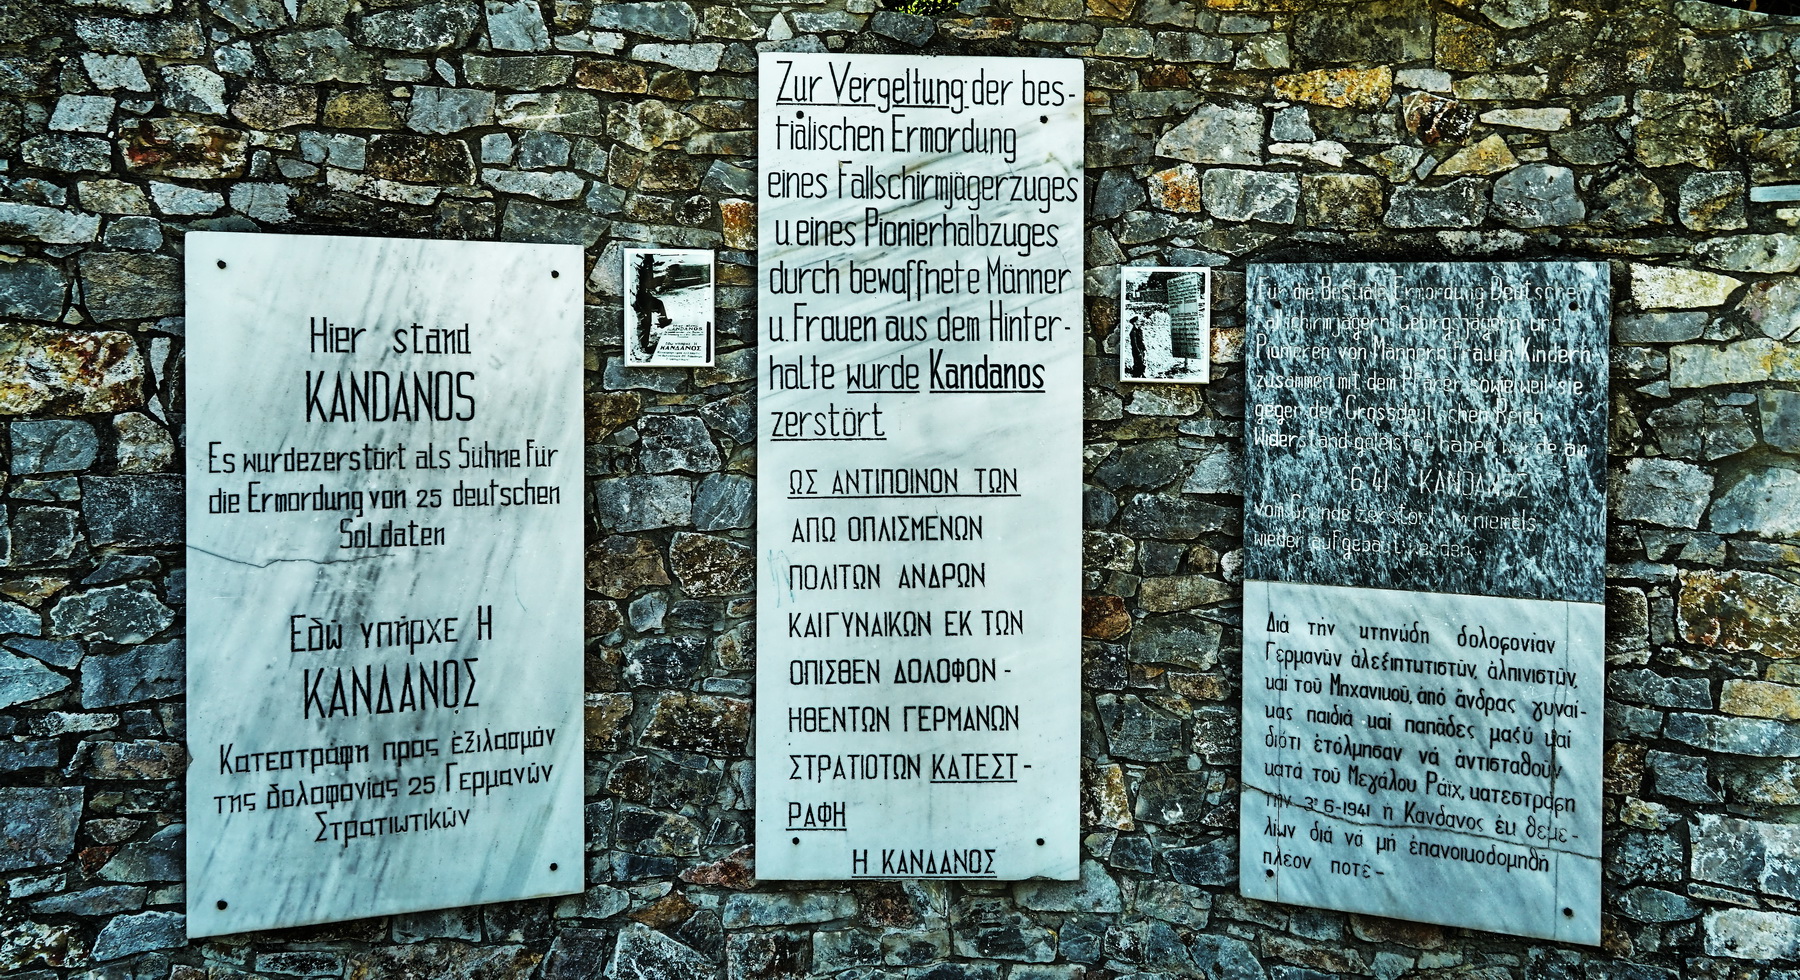 Hier stand
KANDANOS
Es wurdezerstört als Sühne für
die Ermordung von 25 deutschen
Soldaten
Εδώ υπήρχε Η
ΚΑΝΔΑΝΟΣ
Κατεστράφη προς ἐξιλασμόν
της δολοφονίας 25 Γερμανών
Στρατιωτικών
ΚΑΝΔΑΝΟΣ
Zur Vergeltung der bes-
tialischen Ermordung
eines Fallschirmjägerzuges
u.eines Pionierhalbzuges
durch bewaffnete Männer
u. Frauen aus dem Hinter-
halte wurde Kandanos
zerstört
ΩΣ ΑΝΤΙΠΟΙΝΟΝ ΤΩΝ
ΑΠΩ ΟΠΛΙΣΜΕΝΩΝ
ΠΟΛΙΤΩΝ ΑΝΔΡΩΝ
ΚΑΙ ΓΥΝΑΙΚΩΝ ΕΚ ΤΩΝ
ΟΠΙΣΘΕΝ ΔΟΛΟΦΟΝ-
ΗΘΕΝΤΩΝ ΓΕΡΜΑΝΩΝ
ΣΤΡΑΤΙΟΤΩΝ ΚΑΤΕΣΤ-
ΡΑΦΗ
Η ΚΑΝΔΑΝΟΣ
Für die Ermordung Deutscher
Gebirgsjägern und
Pionieren von Männern Frauen Kindern
zusammen mit dem sowie weil sie
der Reich
geleistet
6 41 KANDANOS
vom Grunde zerstört niemals
wieder
Διά τήν κτηνώδη δολοφονίαν
Γερμανῶν ἀλεξιπτωτιστῶν, ἀλπινιστῶν,
καί τοῦ Μηχανικοῦ, ἀπό ἄνδρας γυναί-
κας παιδιά καί παπάδες μαζύ καί
διότι ἐτόλμησαν νά ἀντισταθοῦν
κατά τοῦ Μεγάλου Ράϊχ, κατεστράφη
τήν 3η 6-1941 ἡ Κανδανος ἐκ θεμε-
λίων διά νά μή ἐπανοικοδομηθῆ
πλεον ποτέ-